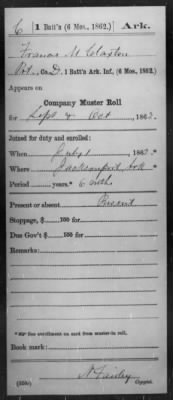 C 1 Batt'n (6 Mos., 1862.) Ark.
Francis M Claxton
Pvt., Co. D, 1 Batt'n Ark. Inf., (6 Mos., 1862.)
Appears on
Company Muster Roll
for Sept & Oct, 1862.
Joined for duty and enrolled:
When July 1, 1862.*
Where Jacksonport, Ark *
Period years.* 6 mths
Present or absent Present
Stoppage, $ 100 for
Due Gov't $ 100 for
Remarks:
*See enrollment on card from muster-in roll.
Book mark:
Copyist.